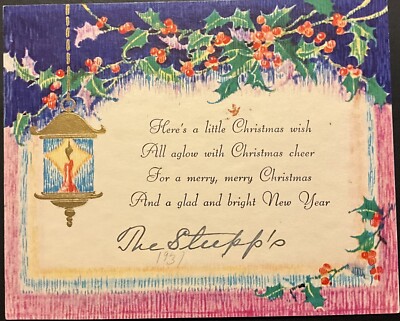 Here's a little Christmas wish
All aglow with Christmas cheer
For a merry, merry Christmas
And a glad and bright New Year
The Stupp's
1931